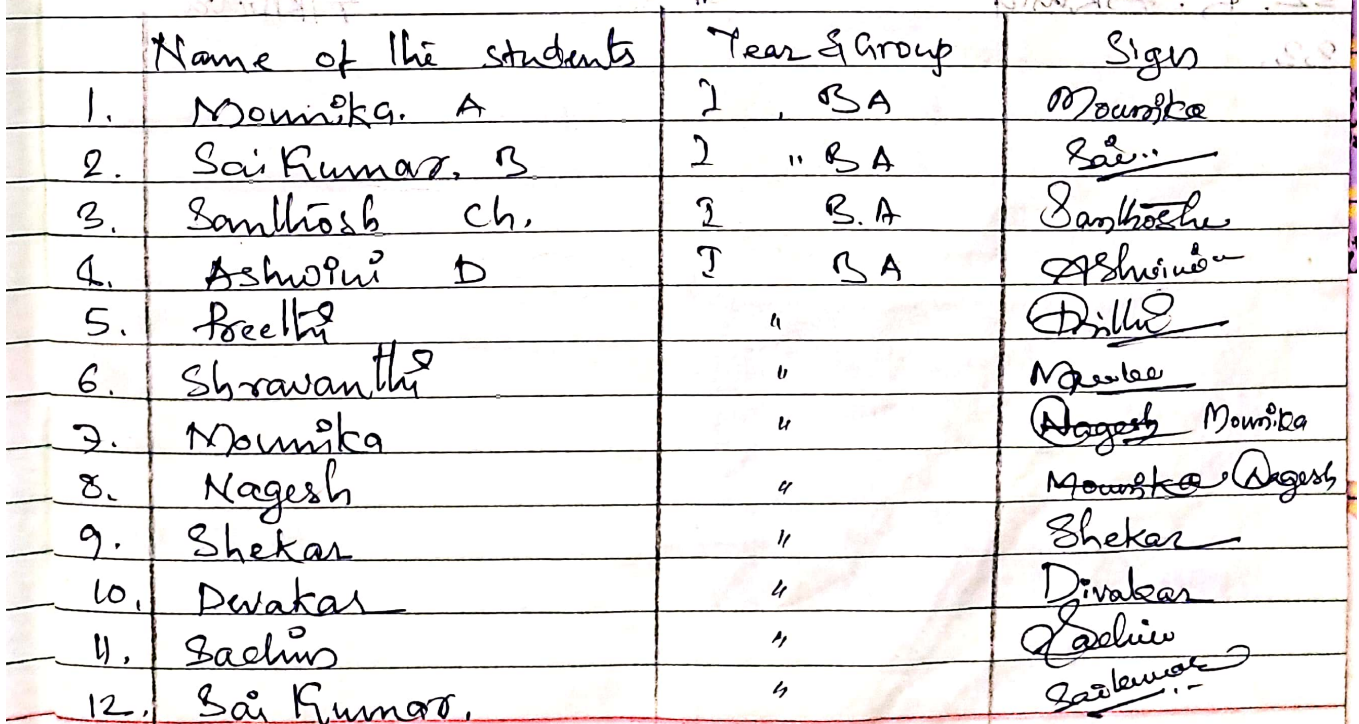 Name of the students Year & Group Sign
1. Mounika. A I , BA Mounika
2. Sai Kumar. B I " BA Sai..
3. Santhosh Ch. I B.A Santhosh
4. Ashwini D I BA Ashwini
5. Preethi "
6. Shravanthi "
7. Mounika " Nagesh Mounika
8. Nagesh " Mounika Nagesh
9. Shekar " Shekar
10. Devakar " Divakar
11. Sachin " Sachin
12. Sai Kumar. " Saikumar